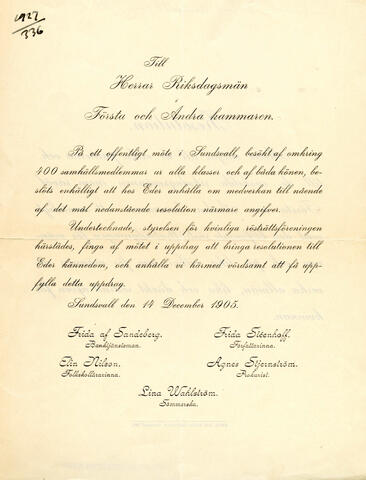 1927/336
Till
Herrar Riksdagsmän
i
Första och Andra kammaren.
På ett offentligt möte i Sundsvall, besökt af omkring
400 samhällsmedlemmar ur alla klasser och af båda könen, be-
slöts enhälligt att hos Eder anhålla om medverkan till nående
af det mål nedanstående resolution närmare angifver.
Undertecknade, styrelsen för kvinliga rösträttsföreningen
härstädes, fingo af mötet i uppdrag att bringa resolutionen till
Eder kännedom, och anhålla vi härmed vördsamt att få upp-
fylla detta uppdrag.
Sundsvall den 14 December 1905.
Frida af Sandeberg. Frida Stéenhoff.
Banktjänsteman. Författarinna.
Elin Nilson, Agnes Stjernström.
Folkskollärarinna. Prokurist.
Lina Wahlström.
Sömmerska.